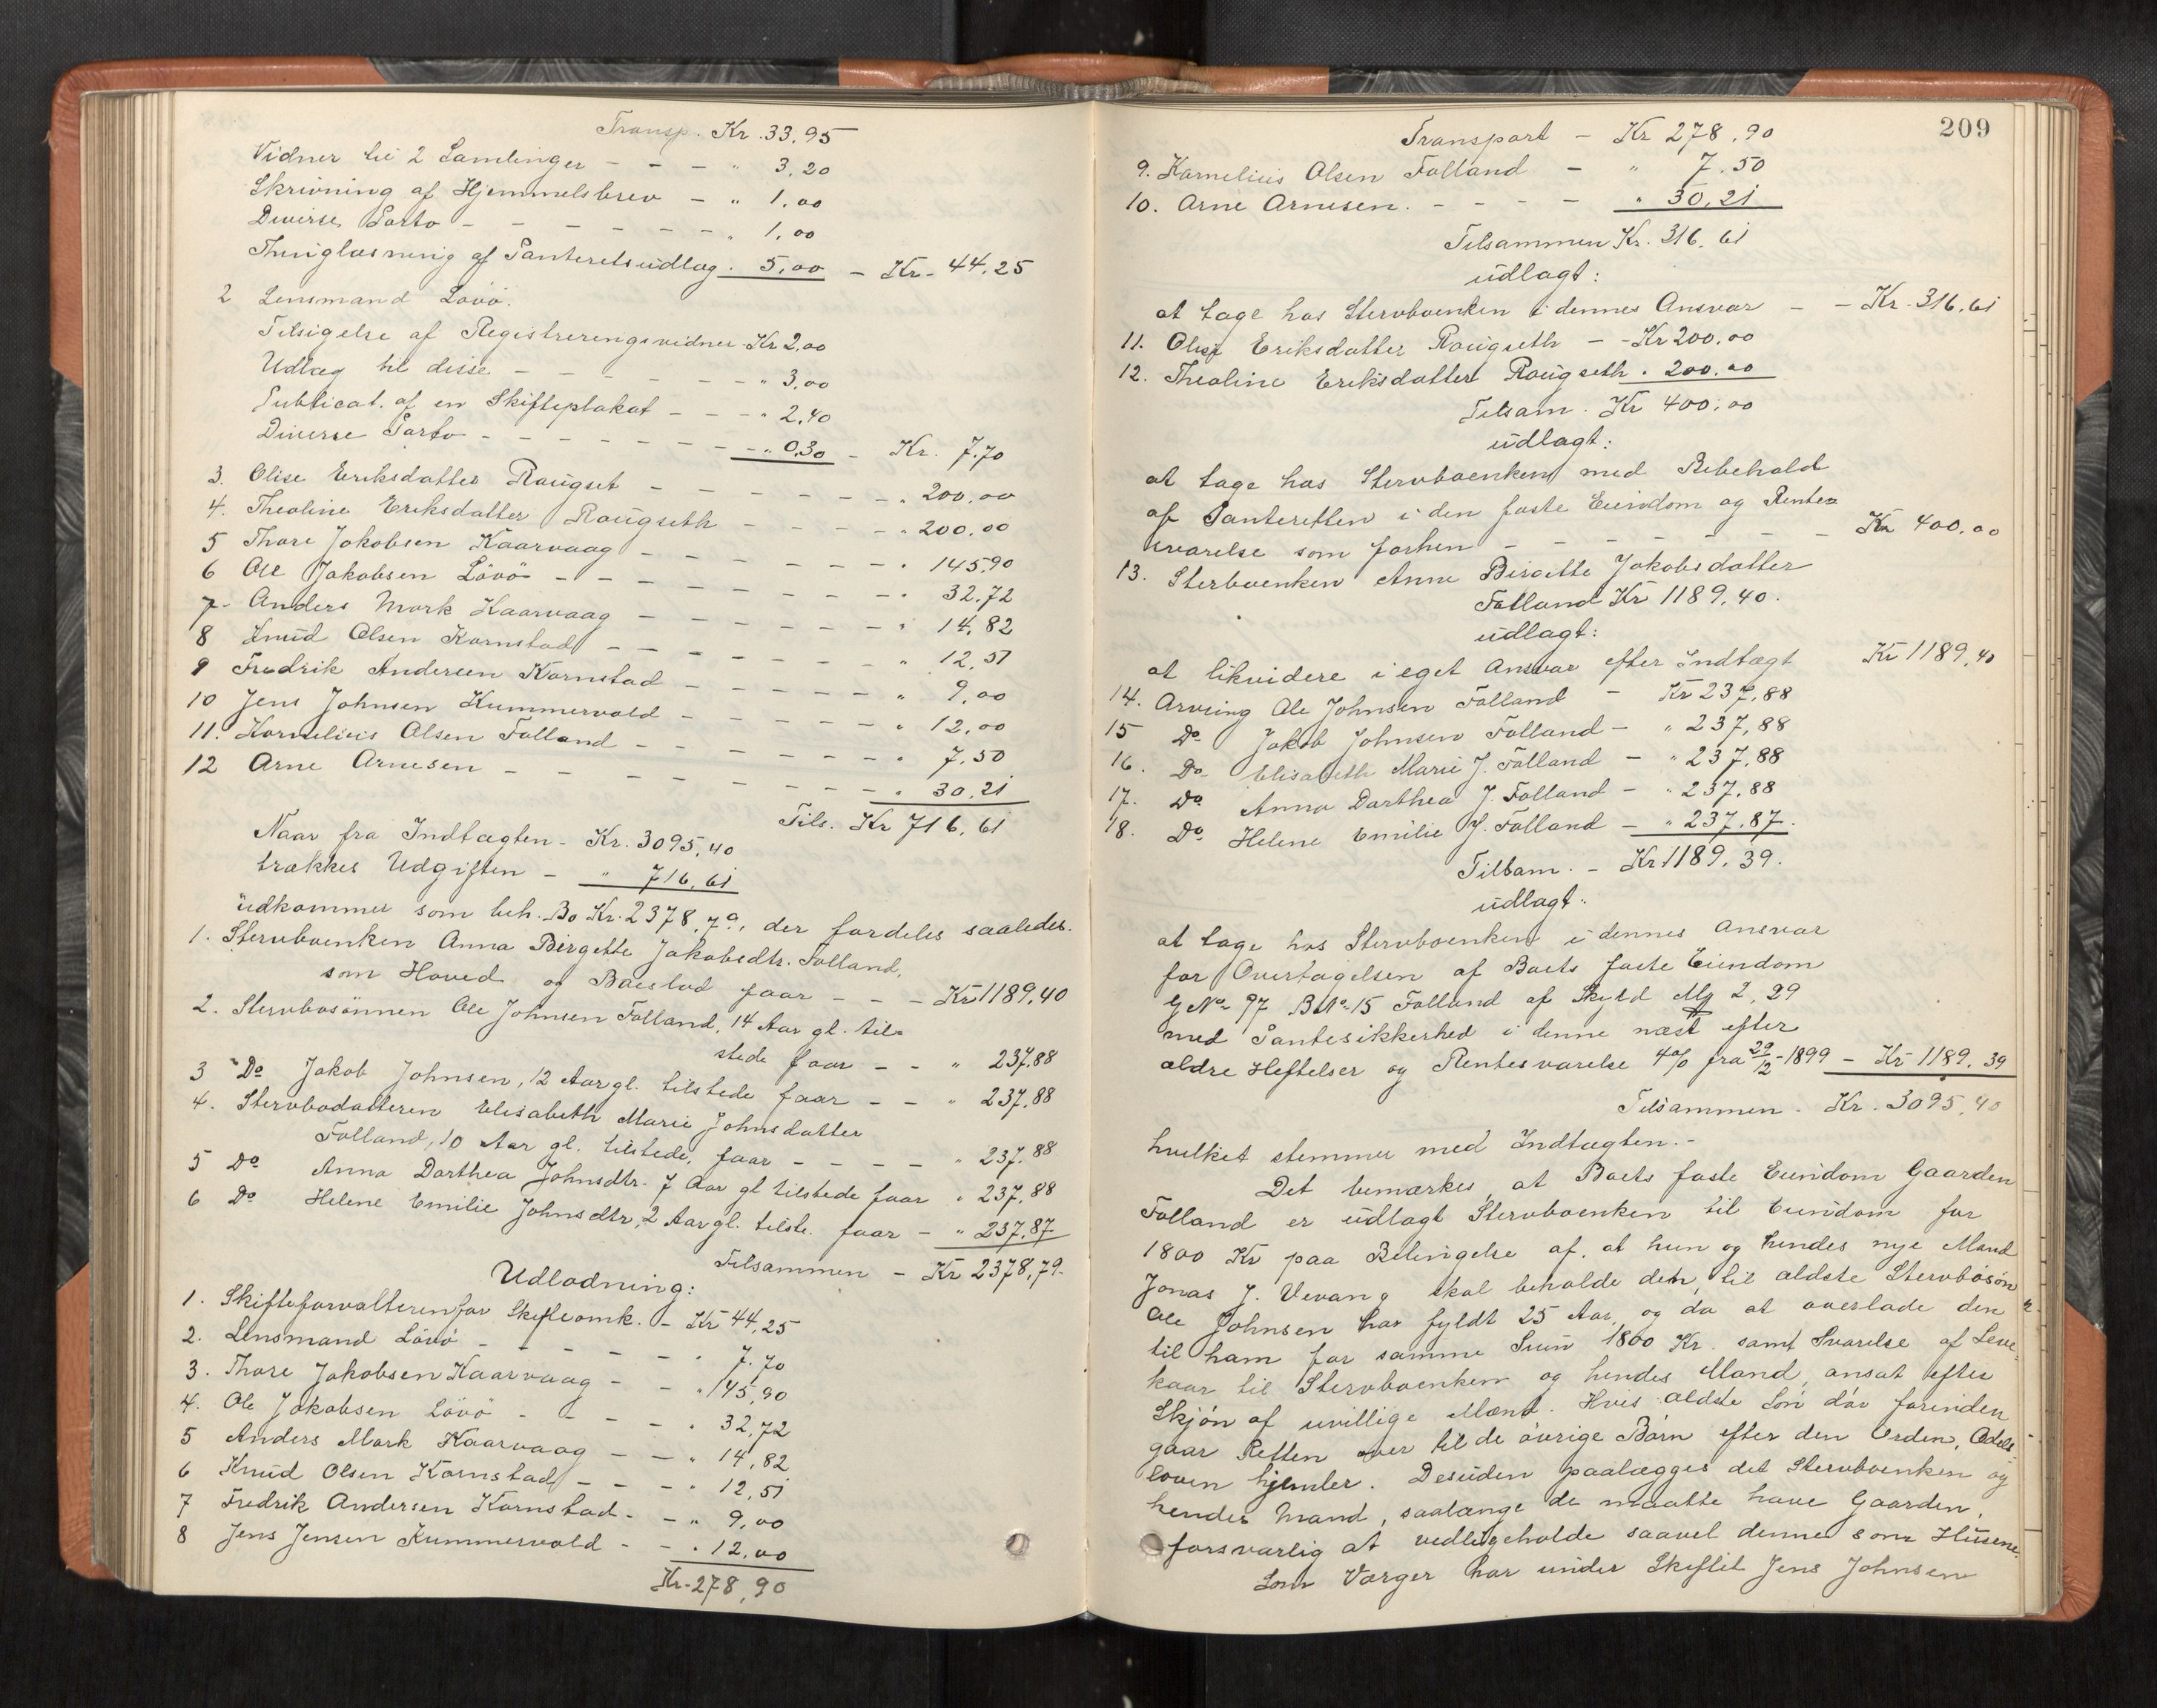 Transp. Kr. 33.95
Vidner til 2 Samlinger - - - " 3,20
Skrivning af Hjemmelsbrev - " 1.00
Diverse Porto - - - - - - - " 1,00
Thinglæsning af Panteretsudlæg. 5,00 - Kr. 44.25
2 Lensmand Lövö.
Tilsigelse af Registreringsvidner Kr 2,00
Udlæg til disse - - - - - - - " 3,00
Publicat. af en Skifteplakat - - - " 2,40
Diverse Porto - - - - - - - - - " 0,30 - Kr. 7.70
3. Olise Eriksdatter Raugset - - - - - - - " 200,00
4. Theoline Eriksdatter Raugseth - - - - - " 200.00
5 Thore Jakobsen Kaarvaag - - - - - - - " 145,90
6 Ole Jakobsen Lövö - - - - - - - - - " 32.72
7. Anders Mork Kaarvaag - - - - - - - " 14,82
8 Knud Olsen Kornstad - - - - - - - - " 12,51
9 Fredrik Andersen Kornstad - - - - - " 9,00
10 Jens Johnsen Kummervold - - - - - - " 12,00
11. Kornelius Olsen Folland - - - - - - - " 7.50
12 Arne Arnesen - - - - - - - - - " 30,21
Tils. Kr 716,61
Naar fra Indtægten - Kr. 3095,40
trækkes Udgiften - " 716,61
udkommer som beh. Bo Kr. 2378,79, der fordeles saaledes.
1. Stervboenken Anna Birgitte Jakobsdtr. Folland,
som Hoved og Boeslod faar - - - Kr 1189,40
2. Stervbosönnen Ole Johnsen Folland, 14 Aar gl. til=
stede faar - - " 237.88
3 Do Jakob Johnsen, 12 Aar gl. tilstede faar - - " 237.88
4. Stervbodatteren Elisabeth Marie Johnsdatter
Folland, 10 Aar gl. tilstede, faar - - - - " 237.88
5 Do Anna Dorthea Johnsdtr. 7 Aar gl tilstede faar " 237,88
6 Do Helene Emilie Johnsdtr, 2 Aar gl. tilste. faar - " 237,87
Tilsammen - Kr 2378,79.
Udlodning:
1. Skifteforvalteren for Skifteomk. - Kr 44,25
2. Lensmand Lövö - - - - - - " 7.70
3. Thore Jakobsen Kaarvaag - - " 145,90
4. Ole Jakobsen Lövö - - - - " 32,72
5 Anders Mork Kaarvaag - - " 14,82
6 Knud Olsen Kornstad - - - " 12,51
7 Fredrik Andersen Kornstad - - " 9,00
8 Jens Jensen Kummervold - - " 12,00
Kr. 278,90
209
Transport - Kr 278,90
9. Kornelius Olsen Folland - " 7.50
10. Arne Arnesen. - - - - " 30,21
Tilsammen Kr. 316,61
udlagt:
at tage hos Stervboenken i dennes Ansvar - - Kr. 316,61
11. Olise Eriksdatter Raugseth - - Kr 200.00
12. Theoline Eriksdatter Raugseth " 200.00
Tilsam. Kr 400.00
udlagt:
at tage hos Stervboenken med Bibehold
af Panteretten i den faste Eiendom og Rentes
svarelse som forhen - - - - - - - - Kr 400.00
13. Sterboenken Anne Birgitte Jakobsdatter
Folland Kr 1189.40.
udlagt:
at likvidere i eget Ansvar efter Indtægt Kr 1189,40
14. Arving Ole Johnsen Folland - Kr 237,88
15 Do Jakob Johnsen Folland - " 237,88
16. Do Elisabeth Marie J. Folland - " 237,88
17. Do Anna Dorthea J. Folland - " 237.88
18. Do Helene Emilie J. Folland - " 237.87.
Tilsam. - Kr 1189.39.
udlagt:
at tage hos Stervboenken i dennes Ansvar
for Overtagelsen af Boets faste Eiendom
G No 97 B No 15 Folland af Skyld Mg 2,29
med Pantesikkerhed i denne næst efter
ældre Heftelser og Rentesvarelse 4% fra 29/12-1899 - Kr 1189,39
Tilsammen - Kr. 3095,40
hvilket stemmer med Indtægten.-
Det bemærkes, at Boets faste Eiendom Gaarden
Folland er udlagt Stervboenken til Eiendom for
1800 Kr paa Betingelse af, at hun og hendes nye Mand
Jonas J. Vevang skal beholde den, til ældste Stervbosön
Ole Johnsen har fyldt 25 Aar, og da at overlade den
til ham for samme Sum 1800 Kr. samt Svarelse af Leve=
kaar til Stervboenken og hendes Mand, ansat efter
Skjön af uvillige Mænd. Hvis ældste Sön dör forinden
gaar Retten over til de övrige Börn efter den Orden, Odels
loven hjemler. Desuden paalægges det Stervboenken og
hendes Mand, saalænge de maatte have Gaarden,
forsvarlig at vedligeholde saavel denne som Husene.
Som Værger har under Skiftet Jens Johnsen